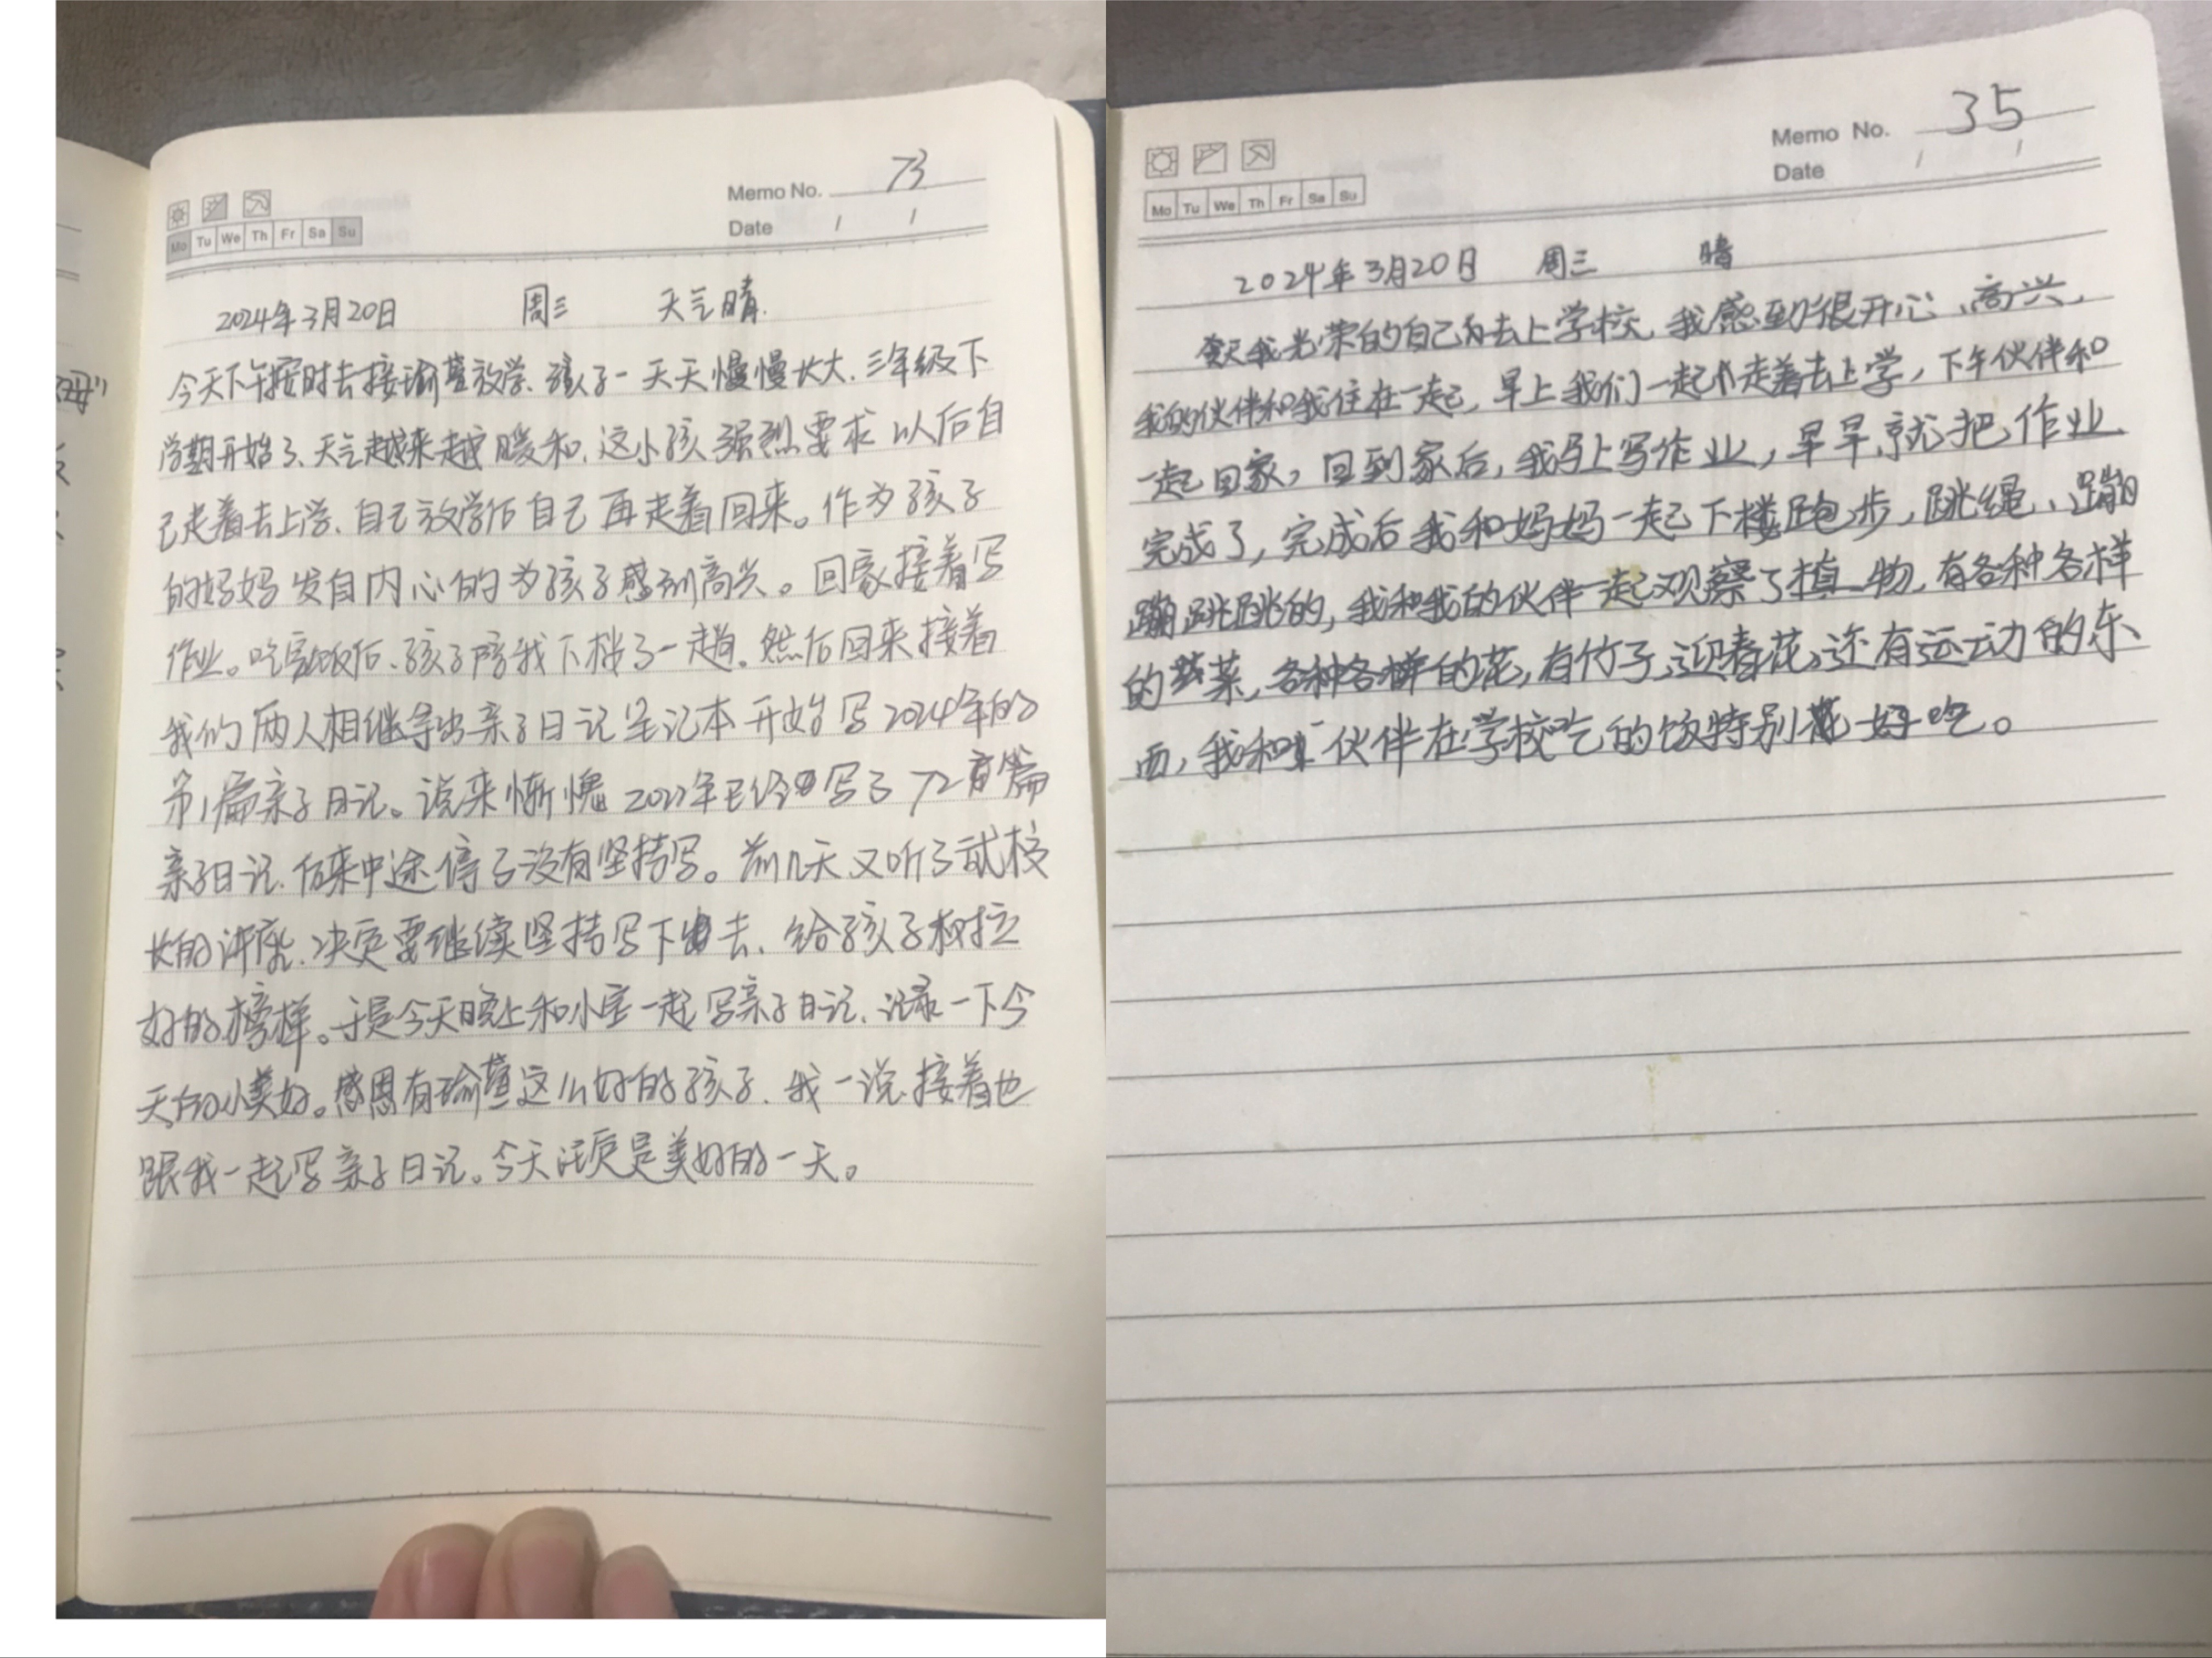 Memo No. 73
Date / /
Mo Tu We Th Fr Sa Su
2024年3月20日 周三 天气晴.
今天下午按时去接瑜萱放学、孩子一天天慢慢长大.三年级下
学期开始了、天气越来越暖和.这小孩强烈要求以后自
己走着去上学、自己放学后自己再走着回来。作为孩子
的妈妈发自内心的为孩子感到高兴。回家接着写
作业。吃完饭后、孩子陪我下楼了一趟。然后回来接着
我们两人相继拿出亲子日记笔记本开始写2024年的
第1篇亲子日记。说来惭愧2022年已经写了72篇
亲子日记.后来中途停了没有坚持写。前几天又听了武校
长的讲座、决定要继续坚持写下去、给孩子树立
好的榜样。于是今天晚上和小宝一起写亲子日记、记录一下今
天的小美好。感恩有瑜萱这么好的孩子、我一说接着也
跟我一起写亲子日记。今天还是美好的一天。
Memo No. 35
Date / /
Mo Tu We Th Fr Sa Su
2024年3月20日 周三 晴
今天我光荣的自己去上学校,我感到很开心、高兴,
我的伙伴和我住在一起,早上我们一起走着去上学,下午伙伴和
一起回家,回到家后,我马上写作业,早早就把作业
完成了,完成后我和妈妈一起下楼跑步,跳绳、蹦
蹦跳跳的,我和我的伙伴一起观察了植物,有各种各样
的菜,各种各样的花,有竹子,迎春花,还有运动的东
西,我和伙伴在学校吃的饭特别好吃。